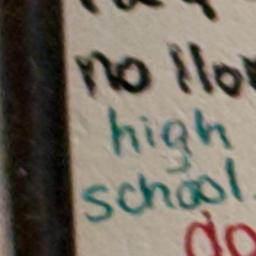 no llor
high
school.
do